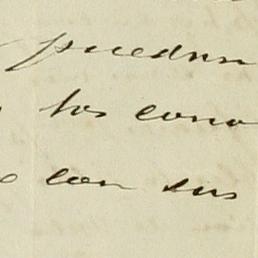 puedan
los cono
con sus